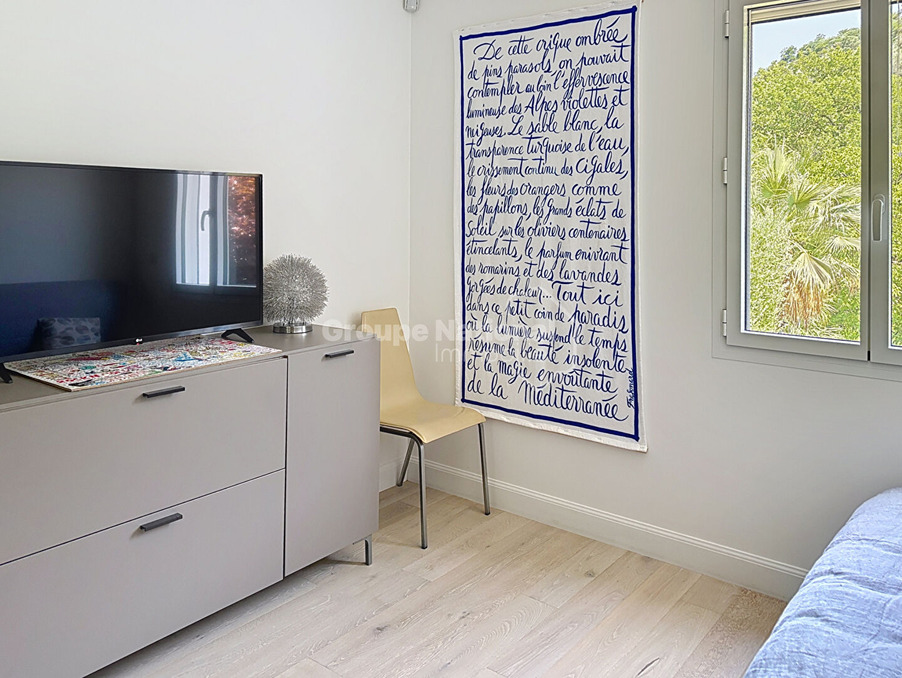 De cette crique ombrée
de pins parasols on pouvait
contempler au loin l'effervescence
lumineuse des Alpes violettes et
neigeuses. Le sable blanc, la
transparence turquoise de l'eau,
le crissement continu des cigales,
les fleurs des orangers comme
des papillons, les grands éclats de
Soleil sur les oliviers centenaires
étincelants, le parfum enivrant
des romarins et des lavandes
gorgées de chaleur... Tout ici
dans ce petit coin de paradis
où la lumière suspend le temps
résume la beauté insolente
et la magie envoûtante
de la Méditerranée
Groupe
LG